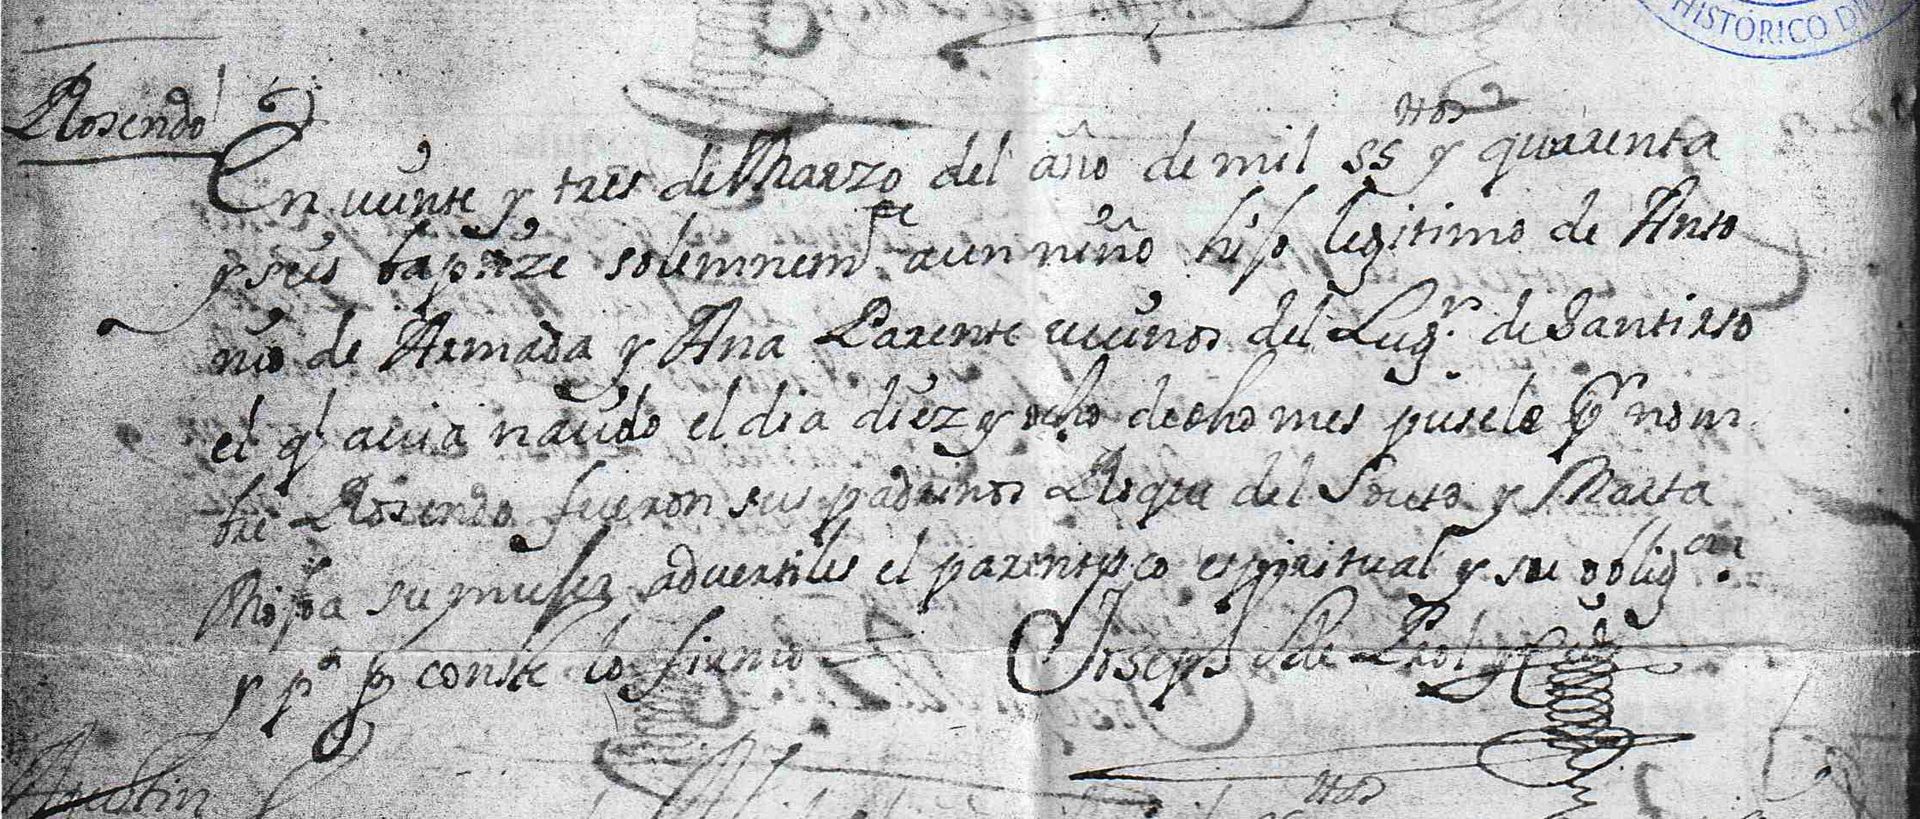 HISTÓRICO DI
Rosendo
En veinte y tres de Marzo del año de mil ss.tos y quarenta
y seis baptize solemnem.te a un niño hijo legitimo de Anto
nio de Armada y Ana Parente vecinos del Lug.r de Santirso
el q.l avia nacido el dia diez y ocho de dho mes pusele p.r nom
bre Rosendo fueron sus padrinos Roque del Souto y Marta
su mujer advertiles el parentesco espiritual y su oblig.on
y p.a q conste lo firmo Joseph de
Agustin